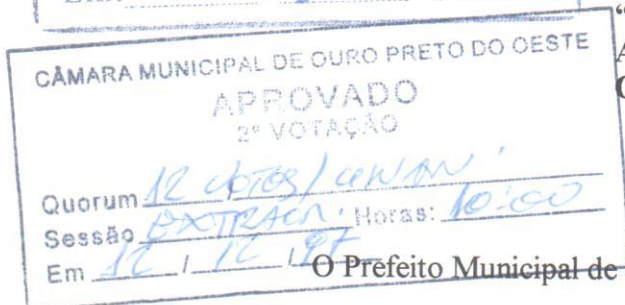 CÂMARA MUNICIPAL DE OURO PRETO DO OESTE
APROVADO
2ª VOTAÇÃO
Quorum 12 votos / unan.
Sessão EXTRAOR. Horas: 10:00
Em 12 / 12 / 97
O Prefeito Municipal de